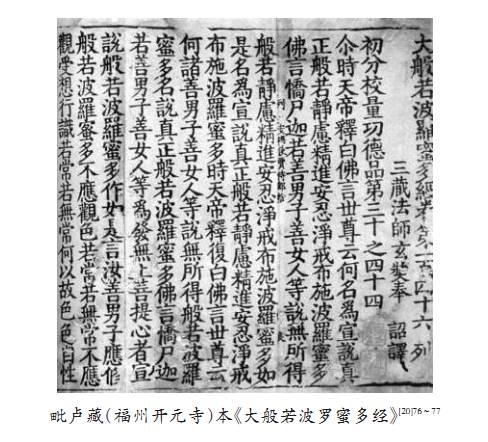 大般若波羅蜜多經卷第一百四十六 列
三藏法師玄奘奉 詔譯
初分校量功德品第三十之四十四
尒時天帝釋白佛言世尊云何名為宣說真
正般若靜慮精進安忍淨戒布施波羅蜜多
佛言憍尸迦若善男子善女人等說無所得
列 一
般若靜慮精進安忍淨戒布施波羅蜜多如
是名為宣說真正般若靜慮精進安忍淨戒
布施波羅蜜多時天帝釋復白佛言世尊云
何諸善男子善女人等說無所得般若波羅
蜜多名說真正般若波羅蜜多佛言憍尸迦
若善男子善女人等為發無上菩提心者宣
說般若波羅蜜多作如是言汝善男子應修
般若波羅蜜多不應觀色若常若無常不應
觀受想行識若常若無常何以故色色自性
毗卢藏(福州开元寺)本《大般若波罗蜜多经》[20]76~77